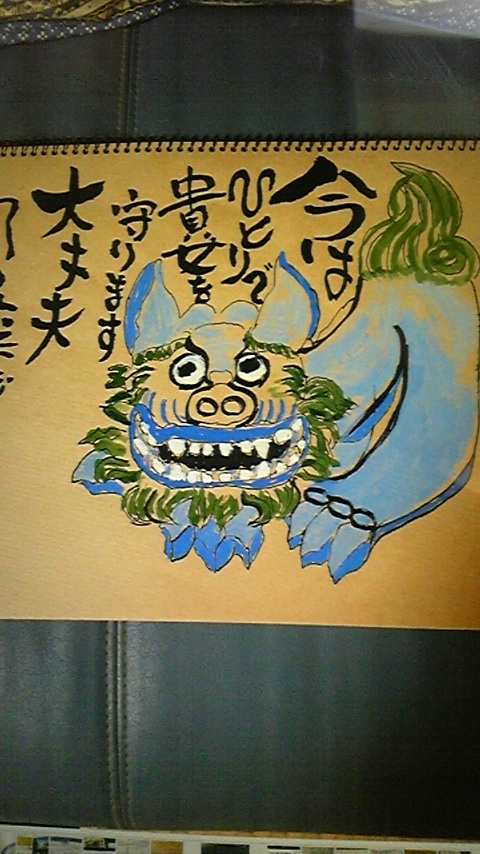 今は
ひとりで
貴女を
守ります
大丈夫